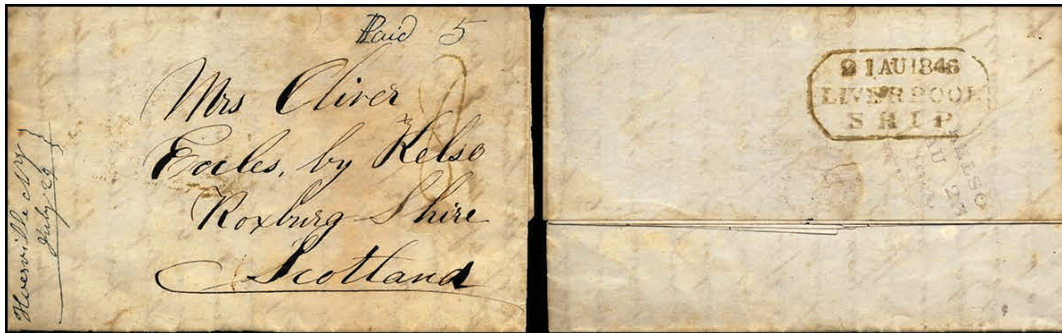 Paid 5
Mrs Oliver
Eccles, by Kelso
Roxburg Shire
Scotland
July 29
21 AU 1846
LIVERPOOL
SHIP
KELSO
AU 23